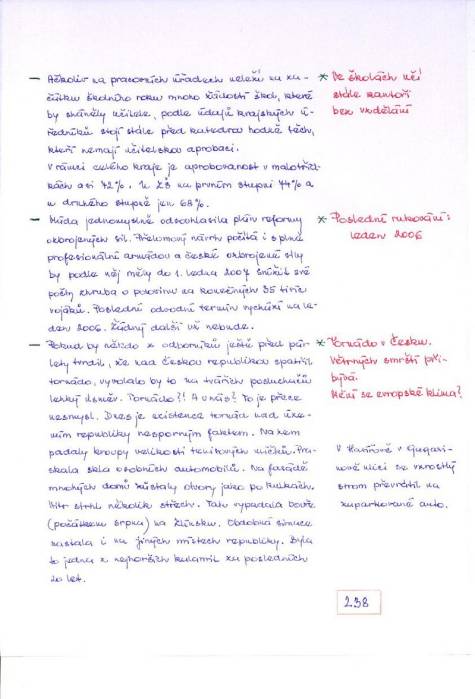 — Ačkoliv na pracovních úřadech neleží na za-
čátku školního roku mnoho žádostí škol, které
by sháněly učitele, podle údajů krajských ú-
ředníků stojí stále před katedrou hodně těch,
kteří nemají učitelskou aprobaci.
V rámci celého kraje je aprobovanost v malotříd-
kách asi 72%. U ZŠ na prvním stupni 74% a
u druhého stupně jen 68%.
— Vláda jednomyslně odsouhlasila plán reformy
ozbrojených sil. Přelomový návrh počítá i s plně
profesionální armádou a české ozbrojené síly
by podle něj měly do 1. ledna 2007 snížit své
počty zhruba o polovinu na konečných 35 tisíc
vojáků. Poslední odvodní termín vychází na le-
den 2006. Žádný další už nebude.
— Pokud by někdo z odborníků ještě před pár
lety tvrdil, že nad Českou republikou spatřil
tornádo, vyvolalo by to na tvářích posluchačů
lehký úsměv. Tornádo?! A u nás? To je přece
nesmysl. Dnes je existence tornád nad úze-
mím republiky nesporným faktem. Na zem
padaly kroupy velikosti tenisových míčků. Pra-
skala skla osobních automobilů. Na fasádě
mnohých domů zůstaly otvory jako po kulkách.
Vítr strhl několik střech. Tak vypadala bouře
(počátkem srpna) na Zlínsku. Obdobná situace
nastala i na jiných místech republiky. Byla
to jedna z nejhorších kalamit za posledních
20 let.
* Ve školách učí
stále kantoři
bez vzdělání
* Poslední rukování:
leden 2006
* Tornádo v Česku.
Větrných smrští při-
bývá.
Mění se evropské klima?
V Karviné v Gagari-
nově ulici se vzrostlý
strom převrátil na
zaparkované auto.
238